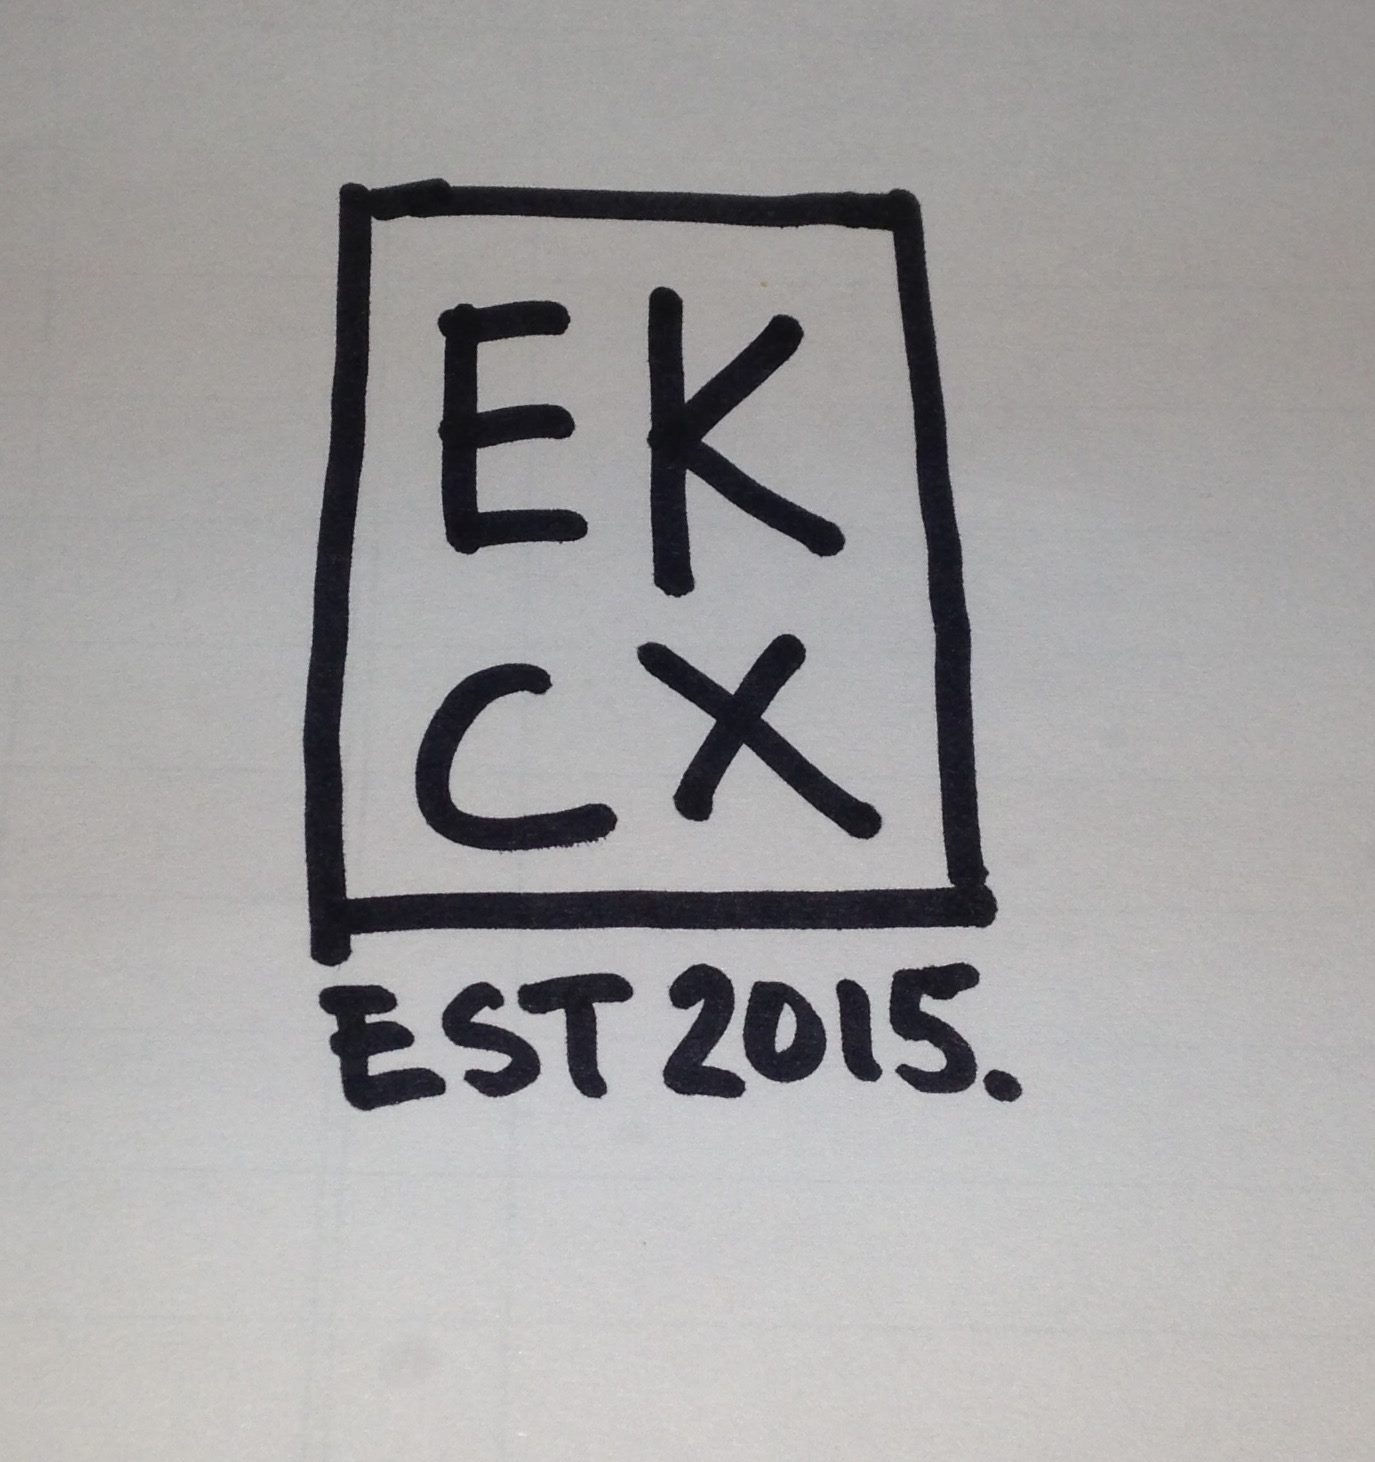 EK
CX
EST 2015.